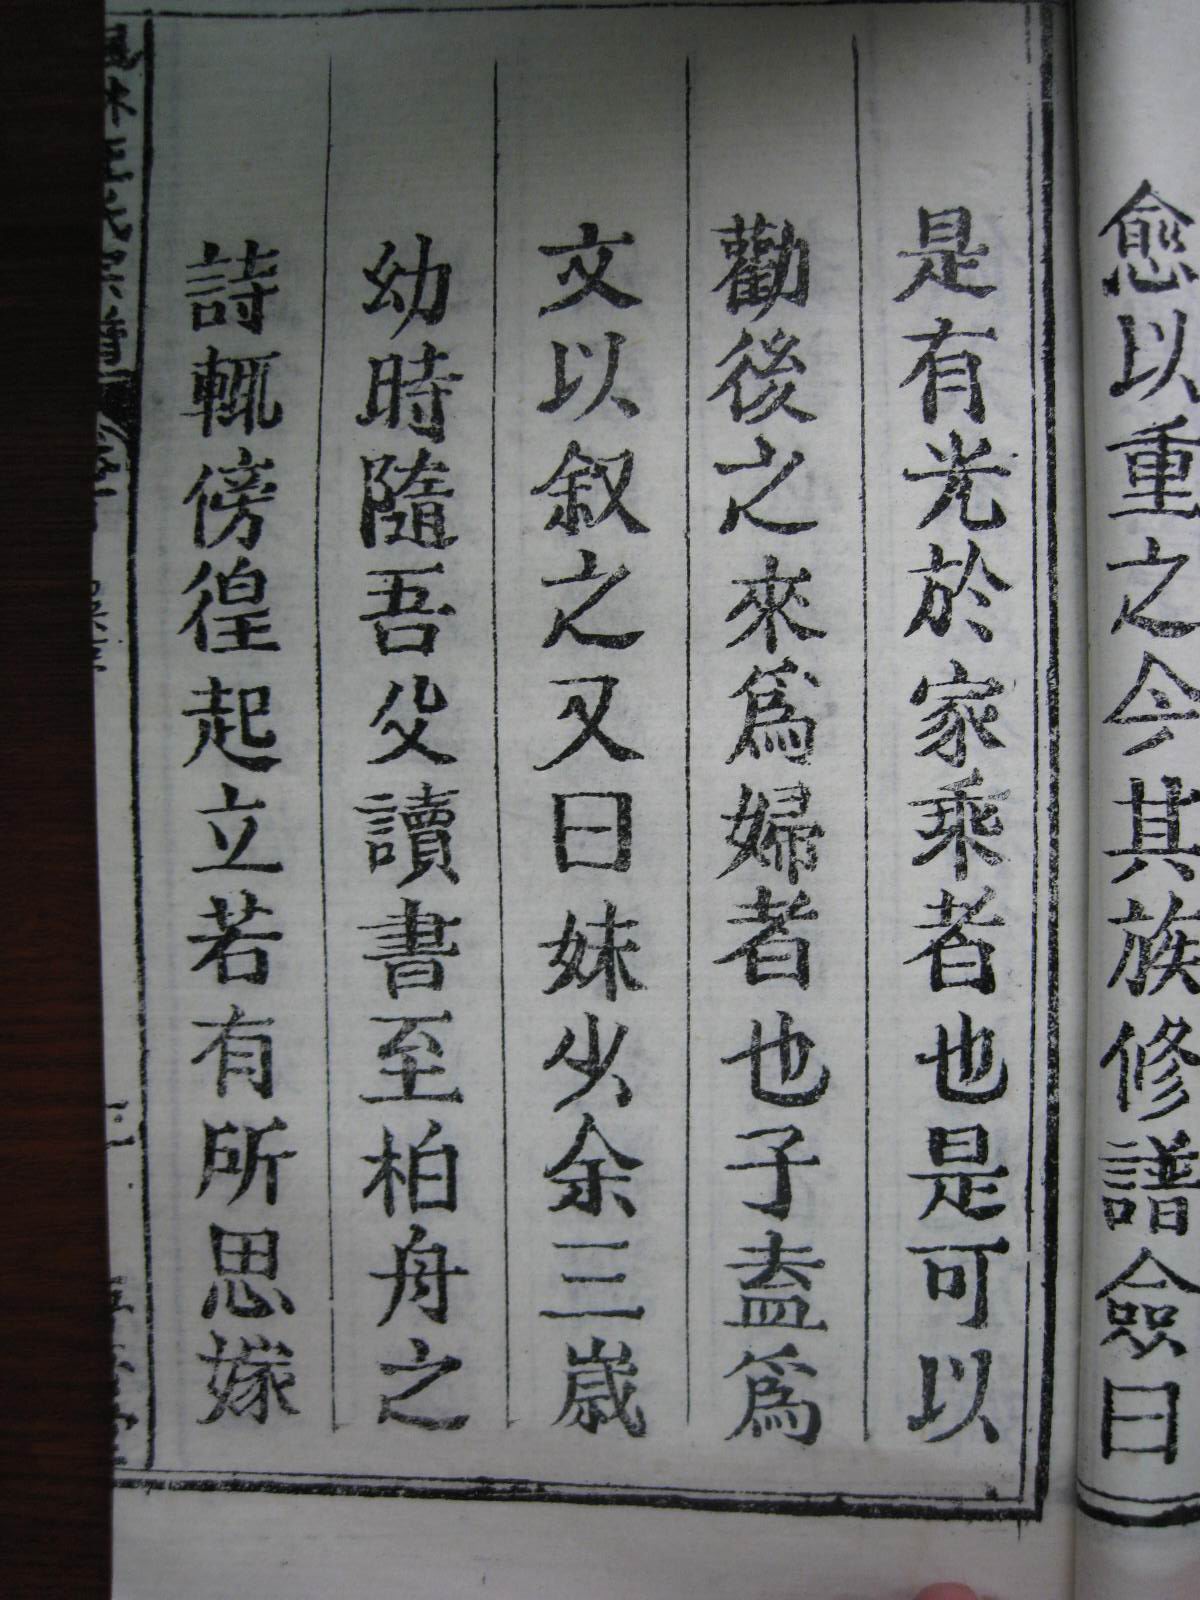 愈以重之今其族修譜僉曰
是有光於家乘者也是可以
勸後之來爲婦者也子盍爲
文以叙之又曰妹少余三歲
幼時隨吾父讀書至柏舟之
詩輒傍徨起立若有所思嫁